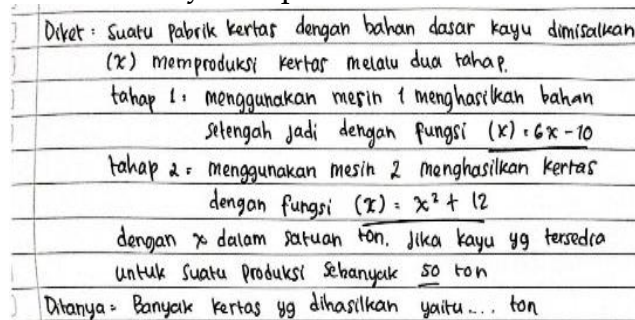 Diket : Suatu pabrik kertas dengan bahan dasar kayu dimisalkan
(x) memproduksi kertas melalui dua tahap.
tahap 1 : menggunakan mesin 1 menghasilkan bahan
setengah jadi dengan fungsi (x) = 6x - 10
tahap 2 = menggunakan mesin 2 menghasilkan kertas
dengan fungsi (x) = x² + 12
dengan x dalam satuan ton. Jika kayu yg tersedia
untuk suatu produksi sebanyak 50 ton
Ditanya = Banyak kertas yg dihasilkan yaitu ... ton